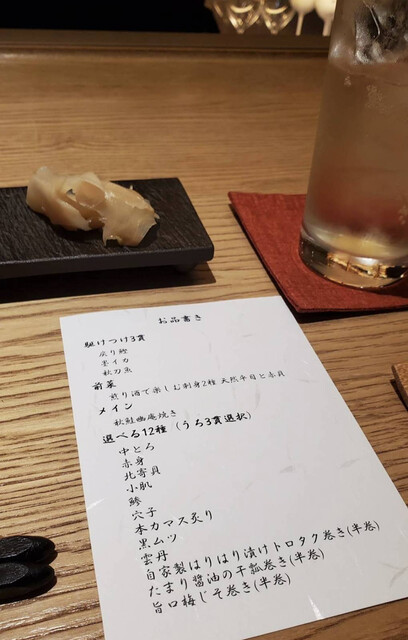 お品書き
駆けつけ3貫
戻り鰹
墨イカ
秋刀魚
前菜
煎り酒で楽しむお刺身2種 天然平目と赤貝
メイン
秋鮭幽庵焼き
選べる12種（うち3貫選択）
中とろ
赤身
北寄貝
小肌
鯵
穴子
本カマス炙り
黒ムツ
雲丹
自家製はりはり漬けトロタク巻き(半巻)
たまり醤油の干瓢巻き(半巻)
旨口梅じそ巻き(半巻)